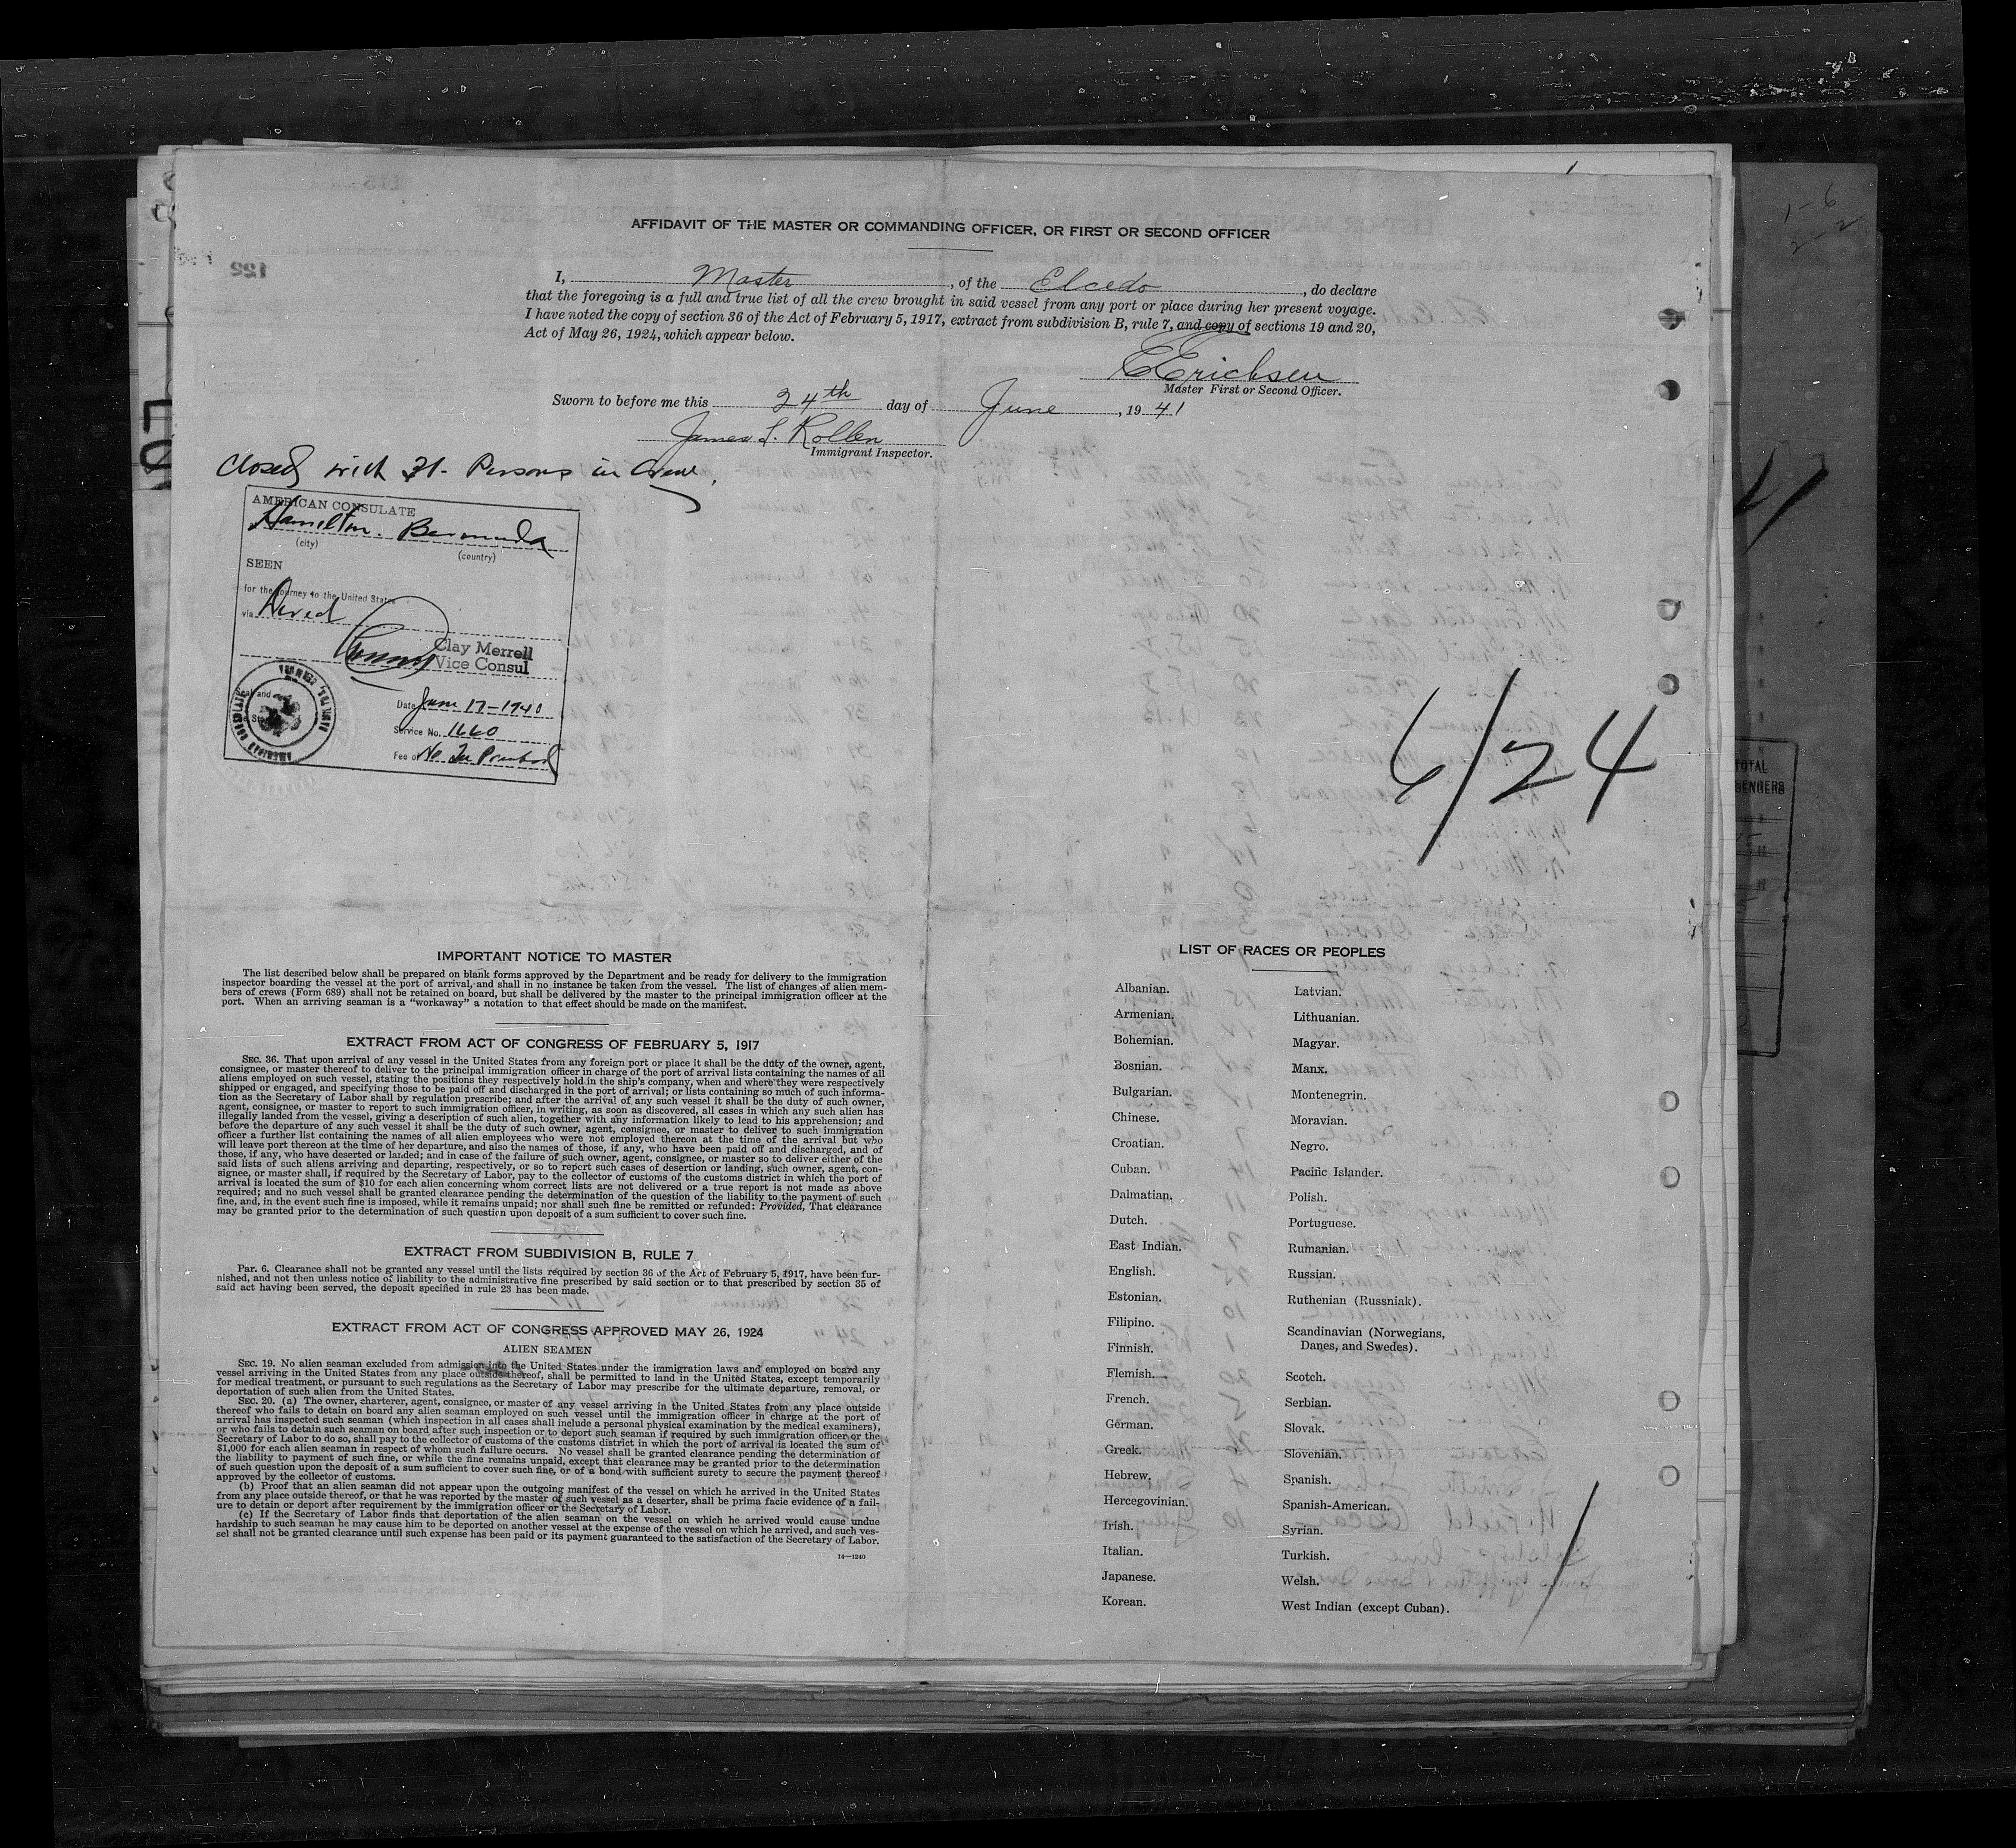 AFFIDAVIT OF THE MASTER OR COMMANDING OFFICER, OR FIRST OR SECOND OFFICER
I, Master, of the Elcedo, do declare
that the foregoing is a full and true list of all the crew brought in said vessel from any port or place during her present voyage.
I have noted the copy of section 36 of the Act of February 5, 1917, extract from subdivision B, rule 7, and copy of sections 19 and 20,
Act of May 26, 1924, which appear below.
E Erichsen
Master First or Second Officer.
Sworn to before me this 24th day of June, 1941
James Kollen
Immigrant Inspector.
Closed with 31 Persons in Crew.
AMERICAN CONSULATE
Hamilton. Bermuda
(city) (country)
SEEN
for the journey to the United States
via Direct
Clay Merrell
Vice Consul
Date June 17-1940
Service No. 1660
Fee No
AMERICAN CONSULATE
6/24
TOTAL
IMPORTANT NOTICE TO MASTER
The list described below shall be prepared on blank forms approved by the Department and be ready for delivery to the immigration
inspector boarding the vessel at the port of arrival, and shall in no instance be taken from the vessel. The list of changes of alien mem-
bers of crews (Form 689) shall not be retained on board, but shall be delivered by the master to the principal immigration officer at the
port. When an arriving seaman is a "workaway" a notation to that effect should be made on the manifest.
EXTRACT FROM ACT OF CONGRESS OF FEBRUARY 5, 1917
SEC. 36. That upon arrival of any vessel in the United States from any foreign port or place it shall be the duty of the owner, agent,
consignee, or master thereof to deliver to the principal immigration officer in charge of the port of arrival lists containing the names of all
aliens employed on such vessel, stating the positions they respectively hold in the ship's company, when and where they were respectively
shipped or engaged, and specifying those to be paid off and discharged in the port of arrival; or lists containing so much of such informa-
tion as the Secretary of Labor shall by regulation prescribe; and after the arrival of any such vessel it shall be the duty of such owner,
agent, consignee, or master to report to such immigration officer, in writing, as soon as discovered, all cases in which any such alien has
illegally landed from the vessel, giving a description of such alien, together with any information likely to lead to his apprehension; and
before the departure of any such vessel it shall be the duty of such owner, agent, consignee, or master to deliver to such immigration
officer a further list containing the names of all alien employees who were not employed thereon at the time of the arrival but who
will leave port thereon at the time of her departure, and also the names of those, if any, who have been paid off and discharged, and of
those, if any, who have deserted or landed; and in case of the failure of such owner, agent, consignee, or master so to deliver either of the
said lists of such aliens arriving and departing, respectively, or so to report such cases of desertion or landing, such owner, agent, con-
signee, or master shall, if required by the Secretary of Labor, pay to the collector of customs of the customs district in which the port of
arrival is located the sum of $10 for each alien concerning whom correct lists are not delivered or a true report is not made as above
required; and no such vessel shall be granted clearance pending the determination of the question of the liability to the payment of such
fine, and, in the event such fine is imposed, while it remains unpaid; nor shall such fine be remitted or refunded: Provided, That clearance
may be granted prior to the determination of such question upon deposit of a sum sufficient to cover such fine.
EXTRACT FROM SUBDIVISION B, RULE 7
Par. 6. Clearance shall not be granted any vessel until the lists required by section 36 of the Act of February 5, 1917, have been fur-
nished, and not then unless notice of liability to the administrative fine prescribed by said section or to that prescribed by section 35 of
said act having been served, the deposit specified in rule 23 has been made.
EXTRACT FROM ACT OF CONGRESS APPROVED MAY 26, 1924
ALIEN SEAMEN
SEC. 19. No alien seaman excluded from admission into the United States under the immigration laws and employed on board any
vessel arriving in the United States from any place outside thereof, shall be permitted to land in the United States, except temporarily
for medical treatment, or pursuant to such regulations as the Secretary of Labor may prescribe for the ultimate departure, removal, or
deportation of such alien from the United States.
SEC. 20. (a) The owner, charterer, agent, consignee, or master of any vessel arriving in the United States from any place outside
thereof who fails to detain on board any alien seaman employed on such vessel until the immigration officer in charge at the port of
arrival has inspected such seaman (which inspection in all cases shall include a personal physical examination by the medical examiners),
or who fails to detain such seaman on board after such inspection or to deport such seaman if required by such immigration officer or the
Secretary of Labor to do so, shall pay to the collector of customs of the customs district in which the port of arrival is located the sum of
$1,000 for each alien seaman in respect of whom such failure occurs. No vessel shall be granted clearance pending the determination of
the liability to payment of such fine, or while the fine remains unpaid, except that clearance may be granted prior to the determination
of such question upon the deposit of a sum sufficient to cover such fine, or of a bond with sufficient surety to secure the payment thereof
approved by the collector of customs.
(b) Proof that an alien seaman did not appear upon the outgoing manifest of the vessel on which he arrived in the United States
from any place outside thereof, or that he was reported by the master of such vessel as a deserter, shall be prima facie evidence of a fail-
ure to detain or deport after requirement by the immigration officer or the Secretary of Labor.
(c) If the Secretary of Labor finds that deportation of the alien seaman on the vessel on which he arrived would cause undue
hardship to such seaman he may cause him to be deported on another vessel at the expense of the vessel on which he arrived, and such ves-
sel shall not be granted clearance until such expense has been paid or its payment guaranteed to the satisfaction of the Secretary of Labor.
14—1240
LIST OF RACES OR PEOPLES
Albanian.
Armenian.
Bohemian.
Bosnian.
Bulgarian.
Chinese.
Croatian.
Cuban.
Dalmatian.
Dutch.
East Indian.
English.
Estonian.
Filipino.
Finnish.
Flemish.
French.
German.
Greek.
Hebrew.
Hercegovinian.
Irish.
Italian.
Japanese.
Korean.
Latvian.
Lithuanian.
Magyar.
Manx.
Montenegrin.
Moravian.
Negro.
Pacific Islander.
Polish.
Portuguese.
Rumanian.
Russian.
Ruthenian (Russniak).
Scandinavian (Norwegians,
Danes, and Swedes).
Scotch.
Serbian.
Slovak.
Slovenian.
Spanish.
Spanish-American.
Syrian.
Turkish.
Welsh.
West Indian (except Cuban).